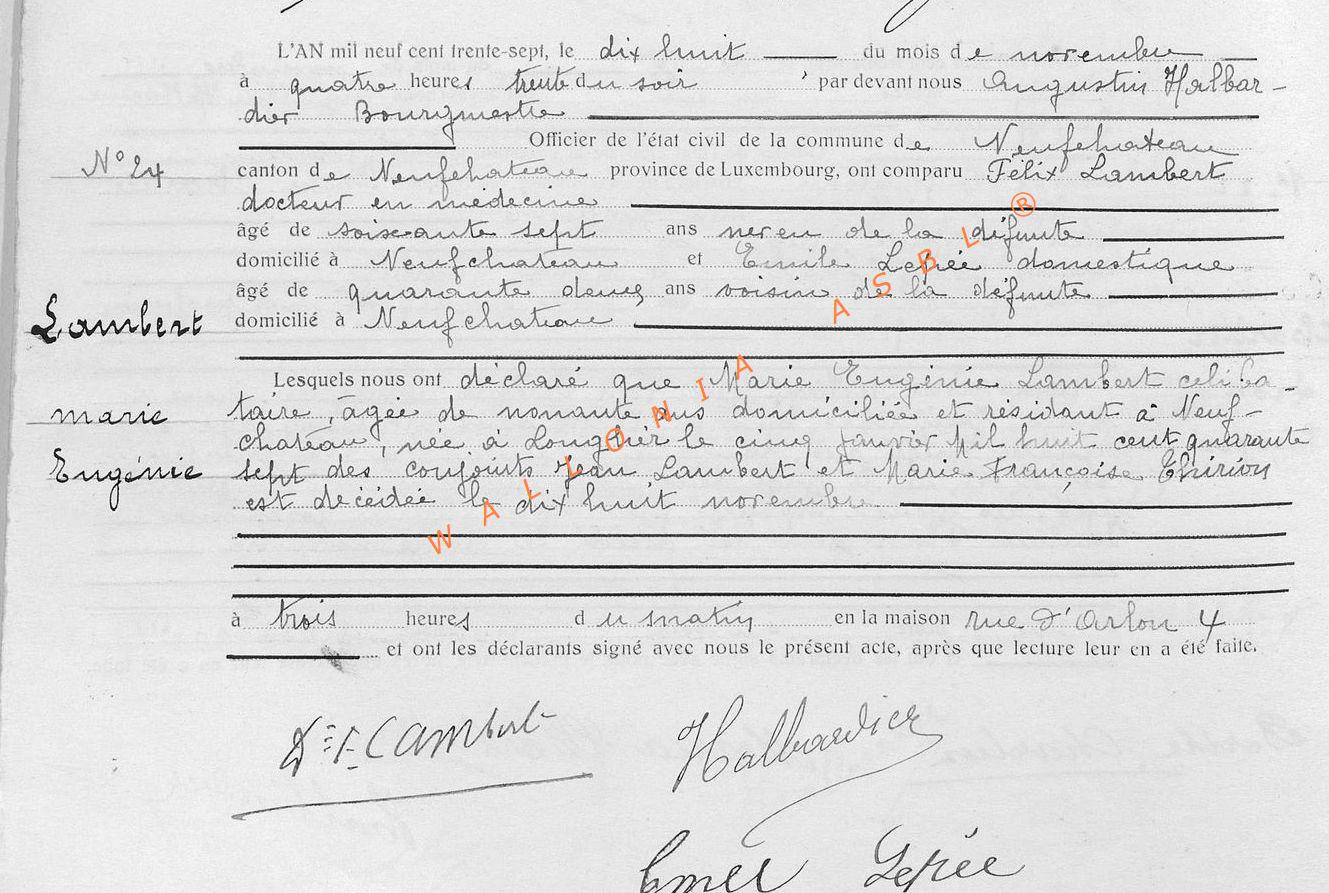 L'AN mil neuf cent trente-sept, le dix huit du mois de novembre
à quatre heures trente du soir par devant nous Augustin Halbar-
dier Bourgmestre
Officier de l'état civil de la commune de Neufchateau
N° 24
canton de Neufchateau province de Luxembourg, ont comparu Félix Lambert
docteur en médecine
âgé de soixante sept ans neveu de la défunte
domicilié à Neufchateau et Emile domestique
âgé de quarante deux ans voisin de la défunte
Lambert
domicilié à Neufchateau
Lesquels nous ont déclaré que Marie Eugénie Lambert céliba-
marie
taire, âgée de nonante ans domiciliée et résidant à Neuf-
chateau, née à Longlier le cinq janvier mil huit cent quarante
Eugénie
sept des conjoints Jean Lambert et Marie Françoise Thirion
est décédée le dix huit novembre
à trois heures du matin en la maison rue d'Arlon 4
et ont les déclarants signé avec nous le présent acte, après que lecture leur en a été faite.
Dr F. Lambert
Halbardier
Emile
WALLONIA ASBL ®